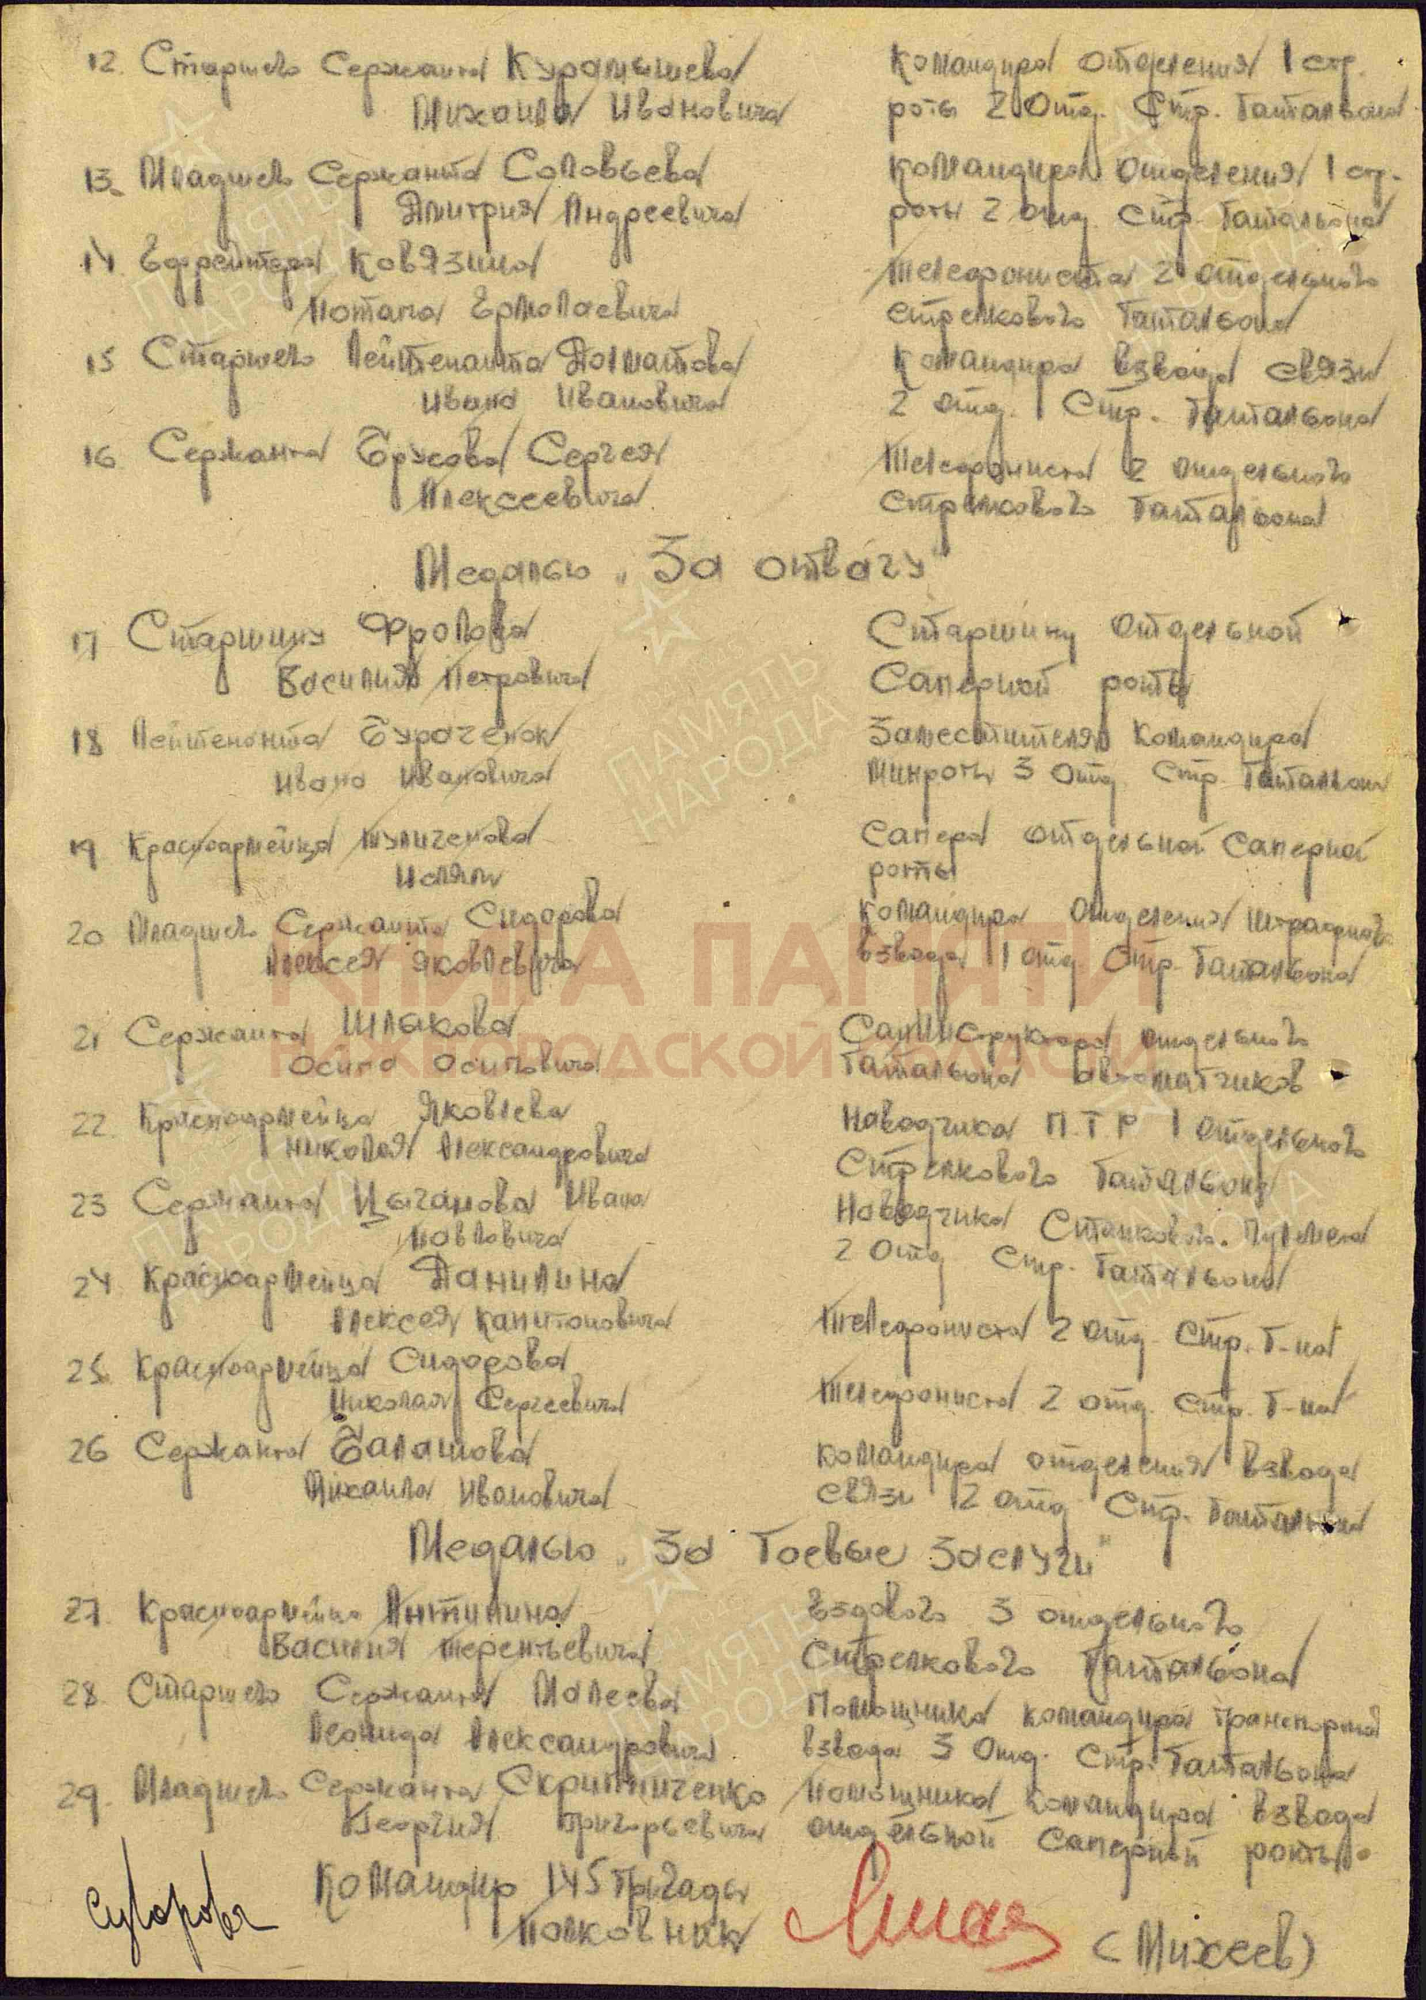 12. Старшего Сержанта Курамышева Командира отделения 1 стр.
Михаила Ивановича роты 2 Отд. Стр. батальона
13. Младшего Сержанта Соловьева Командира отделения 1 стр.
Дмитрия Андреевича роты 2 отд Стр. батальона
14 Ефрейтора Ковязина Телефониста 2 отдельного
Потапа Ермолаевича Стрелкового батальона
15 Старшего Лейтенанта Долматова Командира взвода связи
Ивана Ивановича 2 отд. Стр. батальона
16 Сержанта Сергея Телефониста 2 отдельного
Алексеевича Стрелкового батальона
Медалью „За отвагу"
17 Старшину Фролова Старшину отдельной
Василия Петровича Саперной роты
18 Лейтенанта Бураченок Заместителя Командира
Ивана Ивановича Минроты 3 Отд. Стр. батальона
19 Красноармейца Сапера отдельной Саперной
роты
20 Младшего Сержанта Сидорова Командира Отделения
Алексея Яковлевича взвода 1 отд Стр. батальона
21 Сержанта Шлыкова Санинструктора отдельного
Осипа Осиповича батальона автоматчиков
22 Красноармейца Яковлева Наводчика П.Т.Р 1 отдельного
Николая Александровича Стрелкового батальона
23 Сержанта Цыганова Ивана Наводчика Станкового Пулемета
Павловича 2 Отд Стр. батальона
24 Красноармейца Данилина
Алексея Капитоновича Телефониста 2 отд. Стр. б-на
25 Красноармейца Сидорова
Николая Сергеевича Телефониста 2 отд. Стр. б-на
26 Сержанта Балашова Командира отделения взвода
Михаила Ивановича связи 2 отд Стр. батальона
Медалью „За боевые заслуги"
27 Красноармейца Антипина Ездового 3 отдельного
Василия Терентьевича Стрелкового батальона
28 Старшего Сержанта Малеева Помощника командира транспортного
Леонида Александровича взвода 3 Отд. Стр. батальона
29. Младшего Сержанта Скрипниченко Помощника Командира взвода
Георгия Григорьевича отдельной Саперной роты.
Командир 145 бригады
Полковник (Михеев)
Суворова
ПАМЯТЬ
НАРОДА
КНИГА ПАМЯТИ
НИЖЕГОРОДСКОЙ ОБЛАСТИ